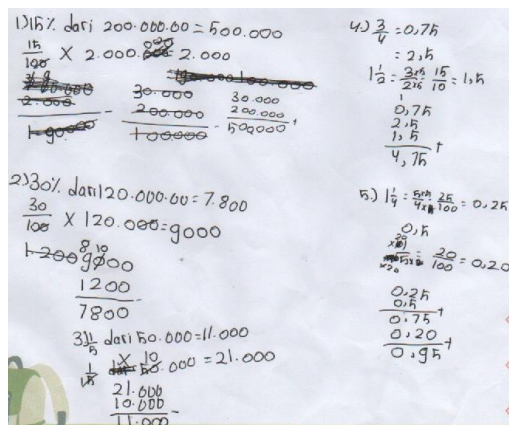 1) 15% dari 200.000.00 = 500.000
15/100 X 2.000.000 = 2.000
2.000
30.000
200.000 -
100000
30.000
200.000 +
500000
2) 30% dari 120.000.00 = 7.800
30/100 X 120.000 = 9000
1200
9000
1200 -
7800
3) 1/5 dari 50.000 = 11.000
1/5 X 50.000 = 21.000
21.000
10.000 -
11.000
4.) 3/4 = 0,75
= 2,5
1 1/2 = 3x5/2x5 = 15/10 = 1,5
0,75
2,5
1,5 +
4,75
5.) 1 1/4 = 5x5/4x5 = 25/100 = 0,25
0,5
= 20/100 = 0,20
0,25
0,5 +
0,75
0,20 +
0,95